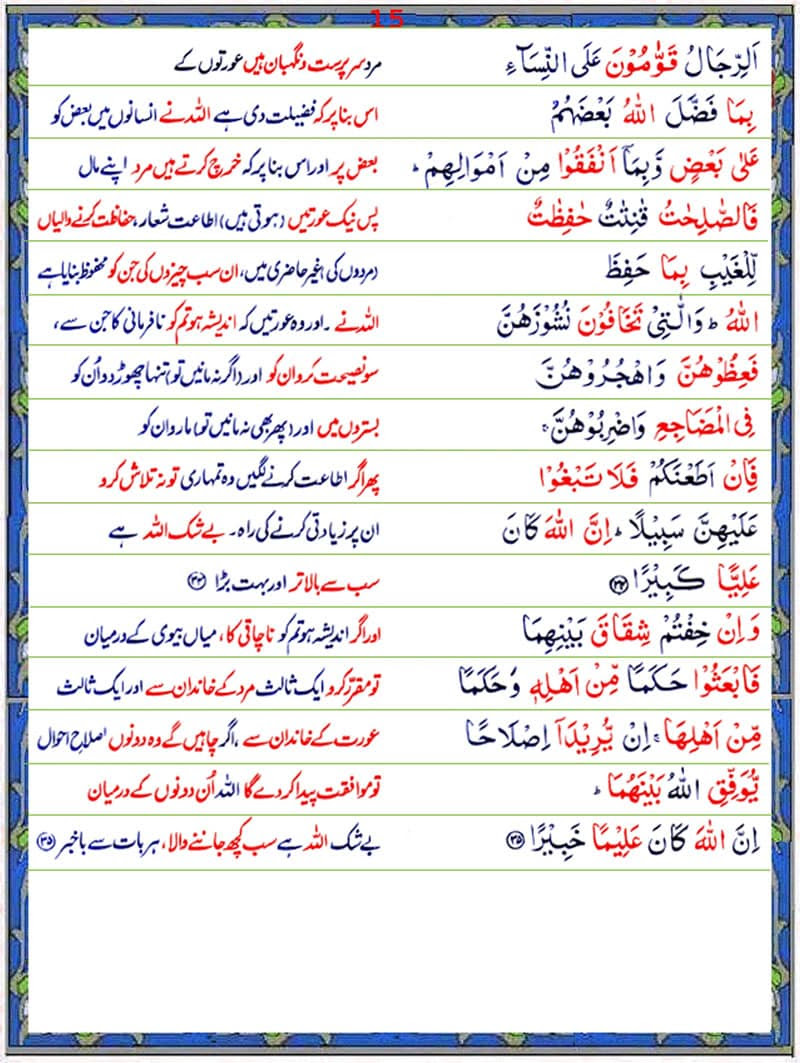 15
اَلرِّجَالُ قَوّٰمُوْنَ عَلَی النِّسَآءِ مرد سرپرست و نگہبان ہیں عورتوں کے
بِمَا فَضَّلَ اللّٰهُ بَعْضَهُمْ اس بنا پر کہ فضیلت دی ہے اللہ نے انسانوں میں بعض کو
عَلٰی بَعْضٍ وَّبِمَاۤ اَنْفَقُوْا مِنْ اَمْوَالِهِمْ ؕ بعض پر اور اس بنا پر کہ خرچ کرتے ہیں مرد اپنے مال
فَالصّٰلِحٰتُ قٰنِتٰتٌ حٰفِظٰتٌ پس نیک عورتیں (ہوتی ہیں) اطاعت شعار، حفاظت کرنے والیاں
لِّلْغَیْبِ بِمَا حَفِظَ (مردوں کی) غیر حاضری میں، ان سب چیزوں کی جن کو محفوظ بنایا ہے
اللّٰهُ ؕ وَالّٰتِیْ تَخَافُوْنَ نُشُوْزَهُنَّ اللہ نے ۔ اور وہ عورتیں کہ اندیشہ ہو تم کو نافرمانی کا جن سے ،
فَعِظُوْهُنَّ وَاهْجُرُوْهُنَّ سو نصیحت کرو ان کو اور (اگر نہ مانیں تو) تنہا چھوڑ دو اُن کو
فِی الْمَضَاجِعِ وَاضْرِبُوْهُنَّ ۚ بستروں میں اور (پھر بھی نہ مانیں تو) مارو ان کو
فَاِنْ اَطَعْنَكُمْ فَلَا تَبْغُوْا پھر اگر اطاعت کرنے لگیں وہ تمہاری تو نہ تلاش کرو
عَلَیْهِنَّ سَبِیْلًا ؕ اِنَّ اللّٰهَ كَانَ ان پر زیادتی کرنے کی راہ۔ بے شک اللہ ہے
عَلِیًّا كَبِیْرًا ﴿۳۴﴾ سب سے بالاتر اور بہت بڑا ﴿۳۴﴾
وَاِنْ خِفْتُمْ شِقَاقَ بَیْنِهِمَا اور اگر اندیشہ ہو تم کو ناچاقی کا، میاں بیوی کے درمیان
فَابْعَثُوْا حَكَمًا مِّنْ اَهْلِهٖ وَحَكَمًا تو مقرّر کرو ایک ثالث مرد کے خاندان سے اور ایک ثالث
مِّنْ اَهْلِهَا ۚ اِنْ یُّرِیْدَاۤ اِصْلَاحًا عورت کے خاندان سے ، اگر چاہیں گے وہ دونوں اصلاحِ احوال
یُّوَفِّقِ اللّٰهُ بَیْنَهُمَا ؕ تو موافقت پیدا کر دے گا اللہ اُن دونوں کے درمیان
اِنَّ اللّٰهَ كَانَ عَلِیْمًا خَبِیْرًا ﴿۳۵﴾ بے شک اللہ ہے سب کچھ جاننے والا، ہر بات سے باخبر ﴿۳۵﴾